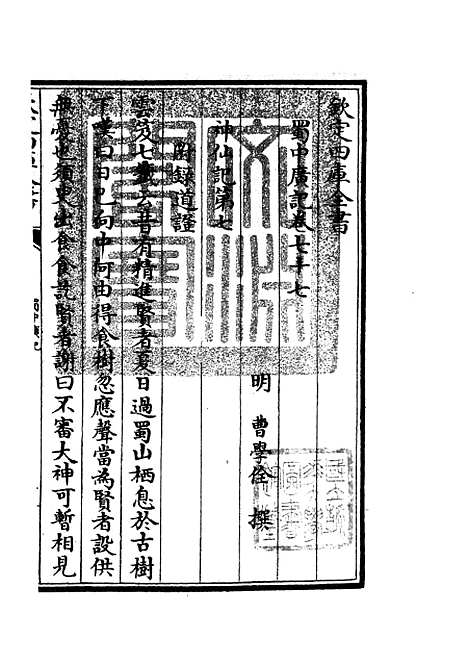 欽定四庫全書
蜀中廣記卷七十七
明 曹學佺 撰
神仙記第七
附錄道證
雲笈七籤云昔有精進賢者夏日過蜀山栖息於古樹
下嘆曰日已向中何由得食樹忽應聲當為賢者設供
無憂也須臾出食食訖賢者謝曰不審大神可暫相見